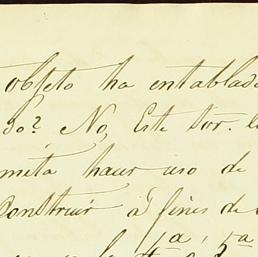 objeto ha entablado
do? No, Este Sor. le
meta hacer uso de
Construir á fines de
4a, 5a